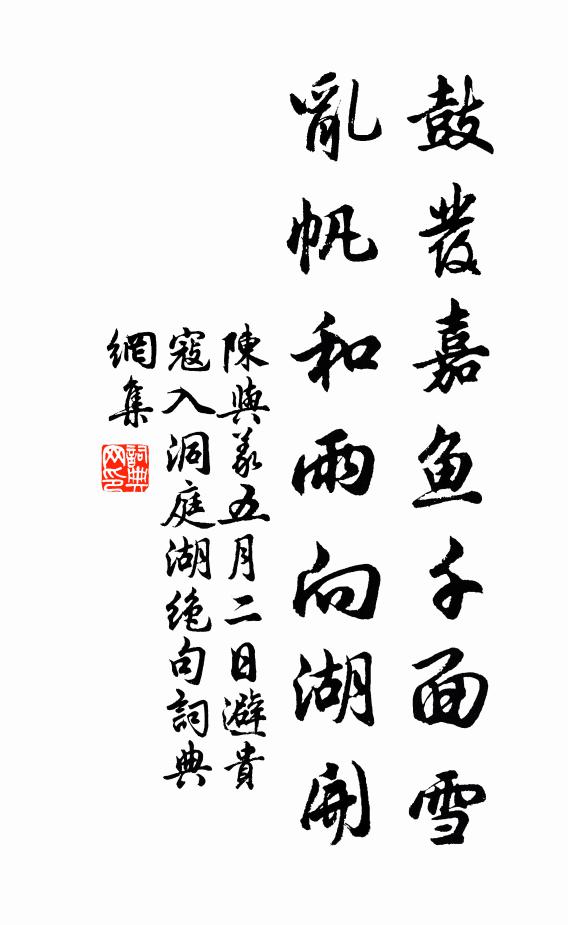 鼓發嘉魚千面雪
亂帆和雨向湖開
陳與義五月二日避貴
寇入洞庭湖絶句詞典
網集
詞典網印